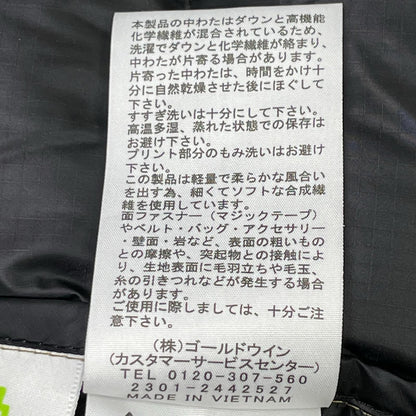 本製品の中わたはダウンと高機能
化学繊維が混合されているため、
洗濯でダウンと化学繊維が絡まり、
中わたが片寄る場合があります。
片寄った中わたは、時間をかけ十
分に自然乾燥させた後にほぐして
下さい。
すすぎ洗いは十分にして下さい。
高温多湿、蒸れた状態での保存は
お避け下さい。
プリント部分のもみ洗いはお避け
下さい。
この製品は軽量で柔らかな風合い
を出す為、細くてソフトな合成繊
維を使用しています。
面ファスナー（マジックテープ）
やベルト・バッグ・アクセサリー
・壁面・岩など、表面の粗いもの
との摩擦や、突起物との接触によ
り、生地表面に毛羽立ちや毛玉、
糸の引きつれなどが発生します。
ご使用に際しましては、十分ご注
意下さい。
(株)ゴールドウイン
(カスタマーサービスセンター)
TEL 0120-307-560
2301-2442527
MADE IN VIETNAM